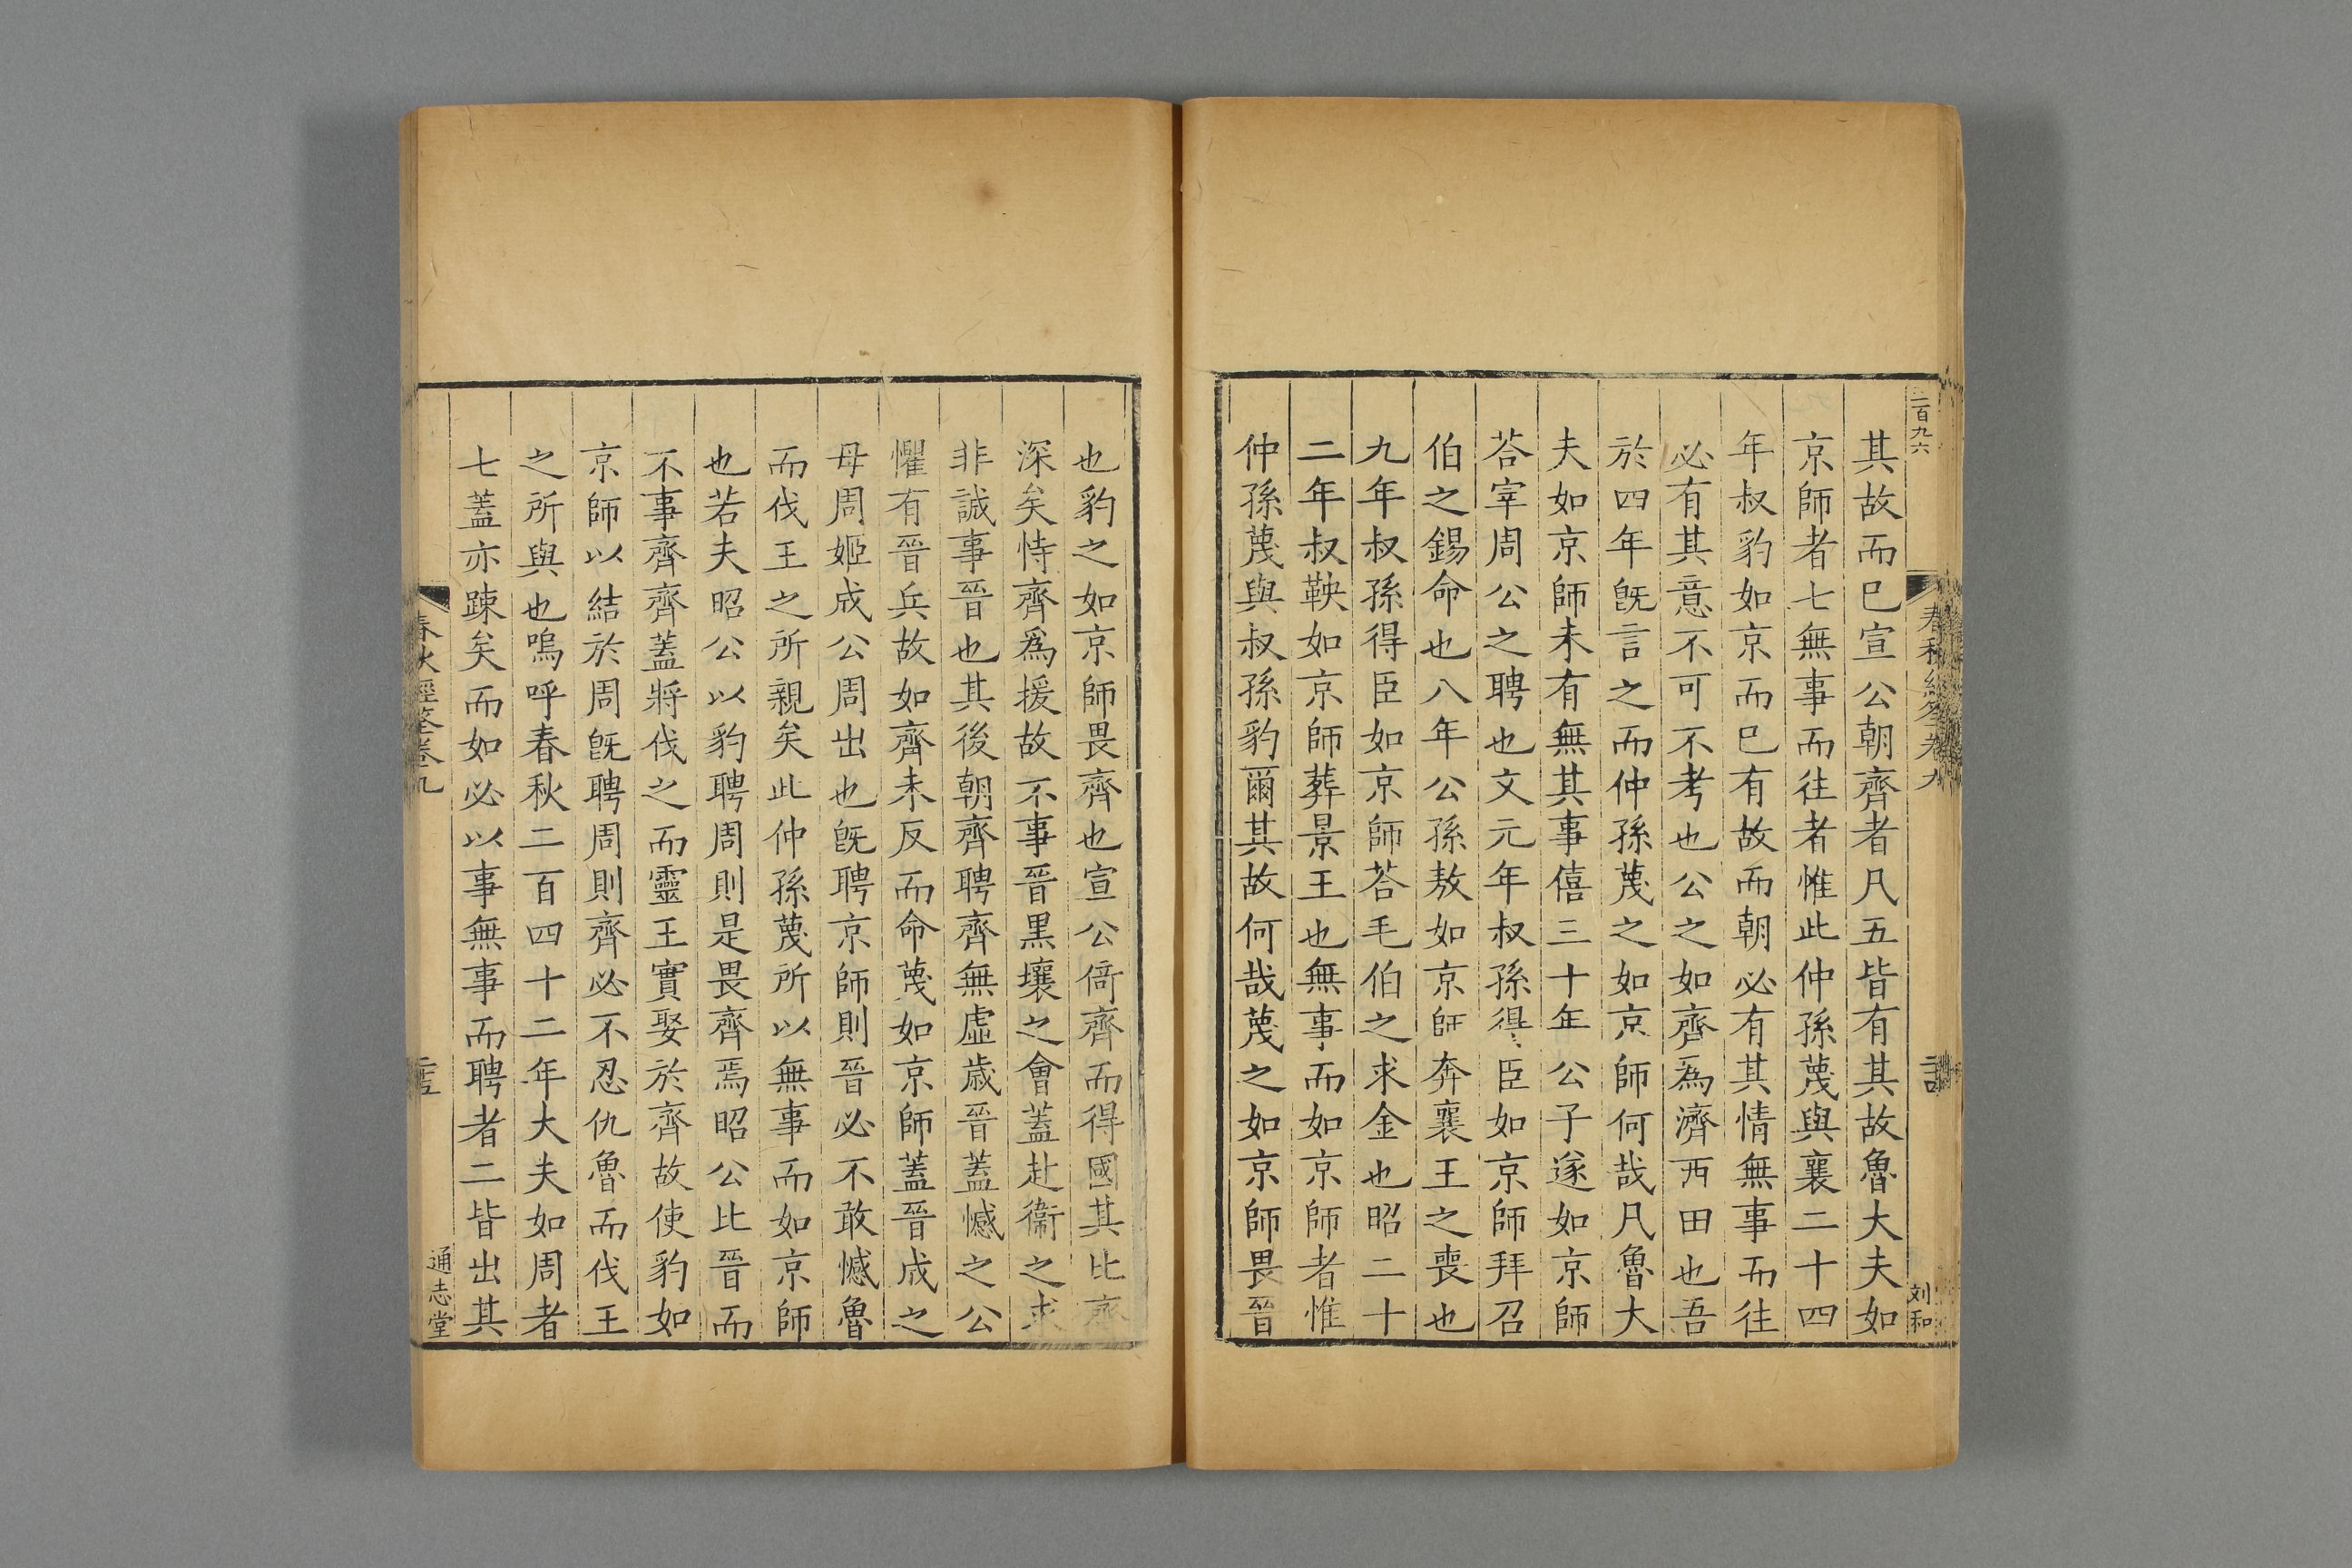 二百九六
其故而巳宣公朝齊者凡五皆有其故魯大夫如
京師者七無事而往者惟此仲孫蔑與襄二十四
年叔豹如京而巳有故而朝必有其情無事而往
必有其意不可不考也公之如齊爲濟西田也吾
於四年旣言之而仲孫蔑之如京師何哉凡魯大
夫如京師未有無其事僖三十年公子遂如京師
荅宰周公之聘也文元年叔孫得臣如京師拜召
伯之錫命也八年公孫敖如京師奔襄王之喪也
九年叔孫得臣如京師荅毛伯之求金也昭二十
二年叔鞅如京師葬景王也無事而如京師者惟
仲孫蔑與叔孫豹爾其故何哉蔑之如京師畏晉
刘和
也豹之如京師畏齊也宣公倚齊而得國其比齊
深矣恃齊爲援故不事晉黒壤之會蓋赴衞之求
非誠事晉也其後朝齊聘齊無虛歳晉蓋憾之公
懼有晉兵故如齊未反而命蔑如京師蓋晉成之
母周姬成公周出也旣聘京師則晉必不敢憾魯
而伐王之所親矣此仲孫蔑所以無事而如京師
也若夫昭公以豹聘周則是畏齊焉昭公比晉而
不事齊齊蓋將伐之而靈王實娶於齊故使豹如
京師以結於周旣聘周則齊必不忍仇魯而伐王
之所與也嗚呼春秋二百四十二年大夫如周者
七蓋亦踈矣而如必以事無事而聘者二皆出其
春秋經筌卷九
通志堂